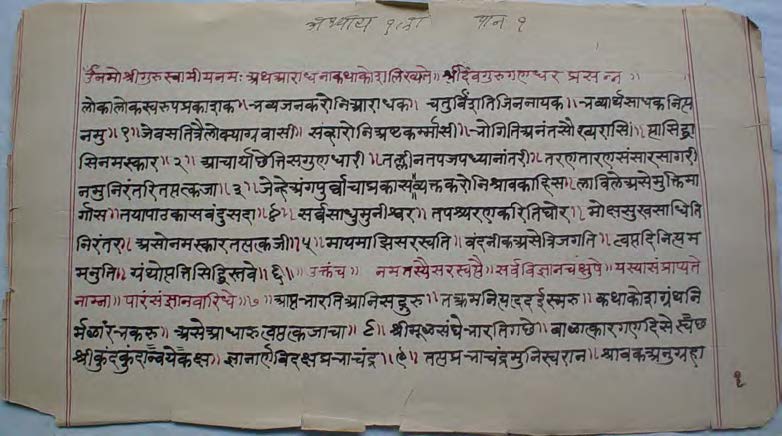 अध्याय १ला पान १
उँनमोश्रीगुरुस्वामीयनमः अथआराधनाकथाकोशलिख्यते॥ श्रीदेवगुरुगणधर प्रसन्न ॥
लोकालोकस्वरुपप्रकाशक॥ भव्यजनकरोनिआराधक॥ चतुर्विंशतिजिननायक॥ भव्यार्थसाधकनित्य
नमु॥१॥जेवसतित्रैलोक्याग्रवासी॥ संव्हारोनिअष्टकर्मासी॥ भोगितिअनंतसौख्यरासि॥ त्यासिद्धा
सिनमस्कार॥२॥ आचार्याछेतिसगुणधारी॥ तल्लीनतपजपध्यानांतरी॥ तरणतारणसंसारसागरी
नमुनिरंतरितत्पत्कजा॥३॥ जेन्देअंगपुर्वाचाप्रकास॥ व्यक्तकरोनिश्रावकादिस॥ लाविलेअसेमुक्तिमा
र्गास॥ तयापाठकासवंदुसदा॥४॥ सर्वसाधुमुनीश्वर॥ तपश्चरणकरितिघोर॥ मोक्षसुखसाधिति
निरंतर॥ असोनमस्कारतत्पत्कजी॥५॥ मायमाझिसरस्वति॥ वंदनीकअसेत्रिजगति॥ त्वत्पदिनित्यम
ममनुति॥ ग्रंथोप्ततिसिद्धिस्तवे॥६॥ उक्तंच॥ नमतस्यैसरस्वत्यै॥ सर्वविज्ञानचक्षुषे॥ यस्यासंप्राप्यते
नाम्ना॥ पारंसंज्ञानवारिधे॥७॥ आप्तभारतिआनिसद्गुरु॥ तत्क्रमनित्यहृदईस्मरु॥ कथाकोशग्रंथनि
र्मळांरभकरु॥ असेआधारुत्वत्पत्कजाचा॥८॥ श्रीमूळसंघेभारतिगछे॥ बाळात्कारगणदिसेस्वछ
श्रीकुंदकुंदान्वयेकैक्ष॥ ज्ञानार्णविदक्षप्रभाचंद्र॥९॥ तत्सप्रभाचंद्रमुनिस्वरान॥ श्रावकअनुग्रहा
१